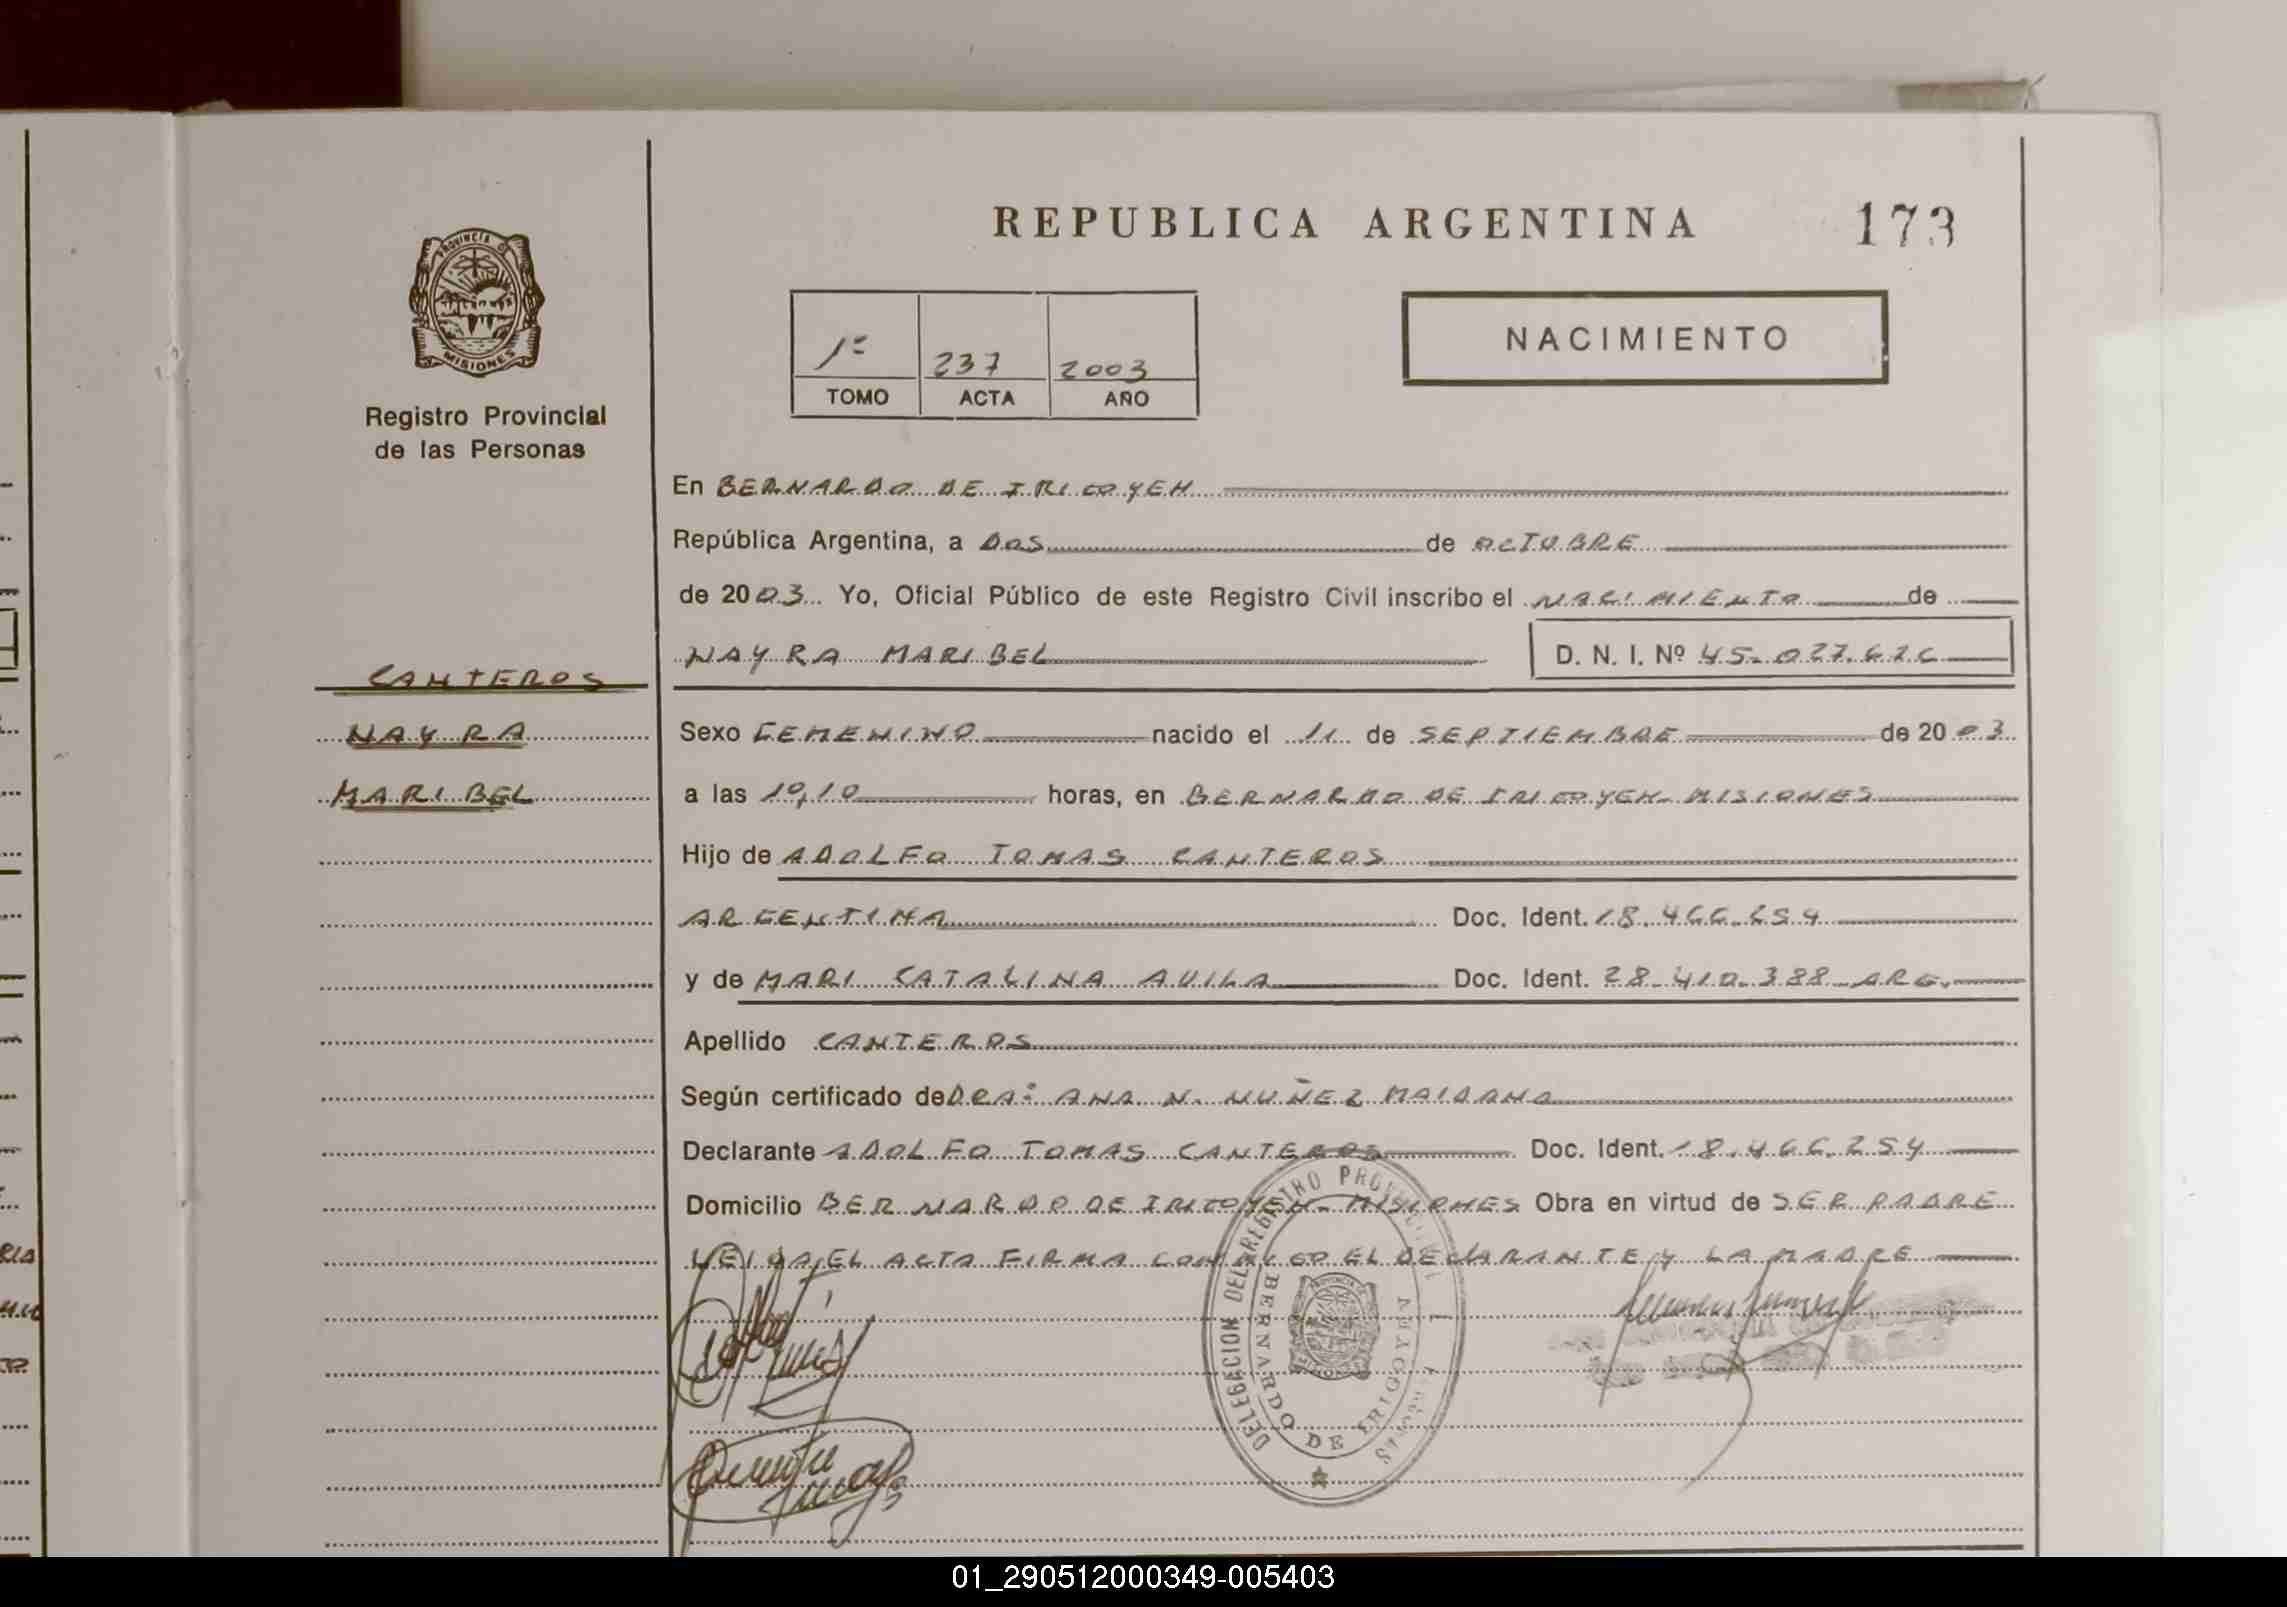 REPUBLICA ARGENTINA 173
PROVINCIA DE
MISIONES
Registro Provincial
de las Personas
1º 237 2003
TOMO ACTA AÑO
NACIMIENTO
En BERNARDO DE IRIGOYEN
República Argentina, a DOS de OCTUBRE
de 2003 Yo, Oficial Público de este Registro Civil inscribo el NACIMIENTO de
NAYRA MARIBEL D. N. I. Nº 45.027.626
CANTEROS
NAYRA
MARIBEL
Sexo FEMENINO nacido el 11 de SEPTIEMBRE de 2003
a las 10,10 horas, en BERNARDO DE IRIGOYEN- MISIONES
Hijo de ADOLFO TOMAS CANTEROS
ARGENTINA Doc. Ident. 18.466.254
y de MARI CATALINA AVILA Doc. Ident. 28.410.388 ARG.
Apellido CANTEROS
Según certificado de DRA: ANA N. NUÑEZ MAIDANA
Declarante ADOLFO TOMAS CANTEROS Doc. Ident. 18.466.254
Domicilio BERNARDO DE IRIGOYEN- MISIONES Obra en virtud de SER PADRE
LEIDA EL ACTA FIRMA CONMIGO EL DECLARANTE Y LA MADRE
DELEGACION DEL REGISTRO PROVINCIAL
BERNARDO DE IRIGOYEN
01_290512000349-005403